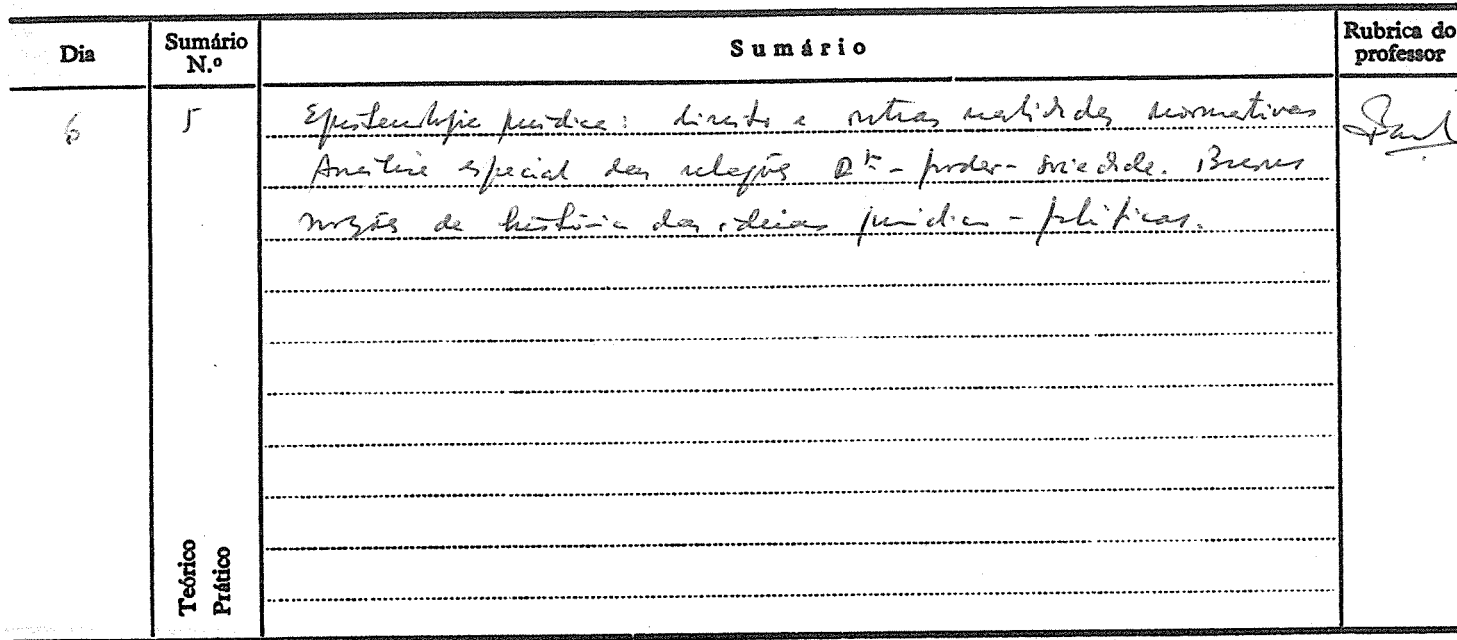 Dia
Sumário N.º
Sumário
Rubrica do professor
6
5
Epistemologia jurídica: direito e outras realidades normativas
Análise especial das relações Dto - poder - sociedade. Breves
noções de história das ideias jurídico - políticas.
Teórico
Prático